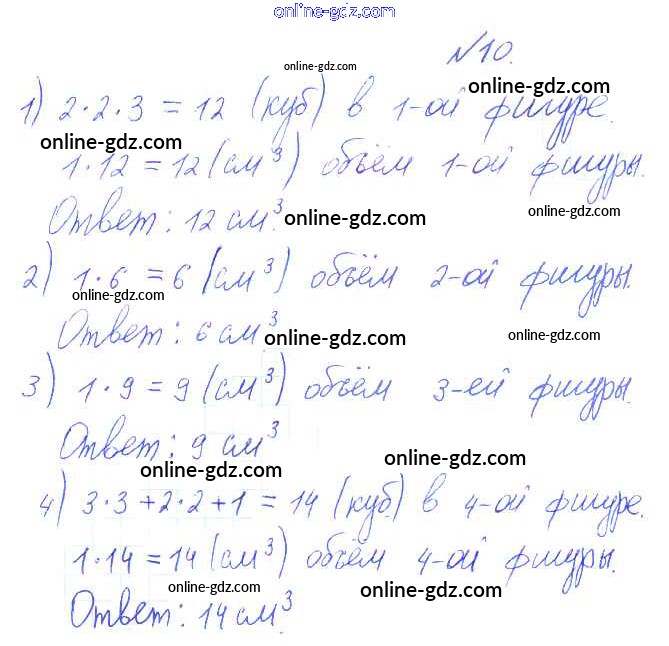 online-gdz.com
№10.
online-gdz.com
online-gdz.com
1) 2·2·3 = 12 (куб) в 1-ой фигуре.
online-gdz.com
1·12 = 12 (см³) объём 1-ой фигуры.
online-gdz.com
Ответ: 12 см³.
online-gdz.com
2) 1·6 = 6 (см³) объём 2-ой фигуры.
online-gdz.com
Ответ: 6 см³
online-gdz.com
online-gdz.com
3) 1·9 = 9 (см³) объём 3-ей фигуры.
Ответ: 9 см³
online-gdz.com
online-gdz.com
4) 3·3+2·2+1 = 14 (куб.) в 4-ой фигуре.
online-gdz.com
1·14 = 14 (см³) объём 4-ой фигуры.
online-gdz.com
online-gdz.com
Ответ: 14 см³.